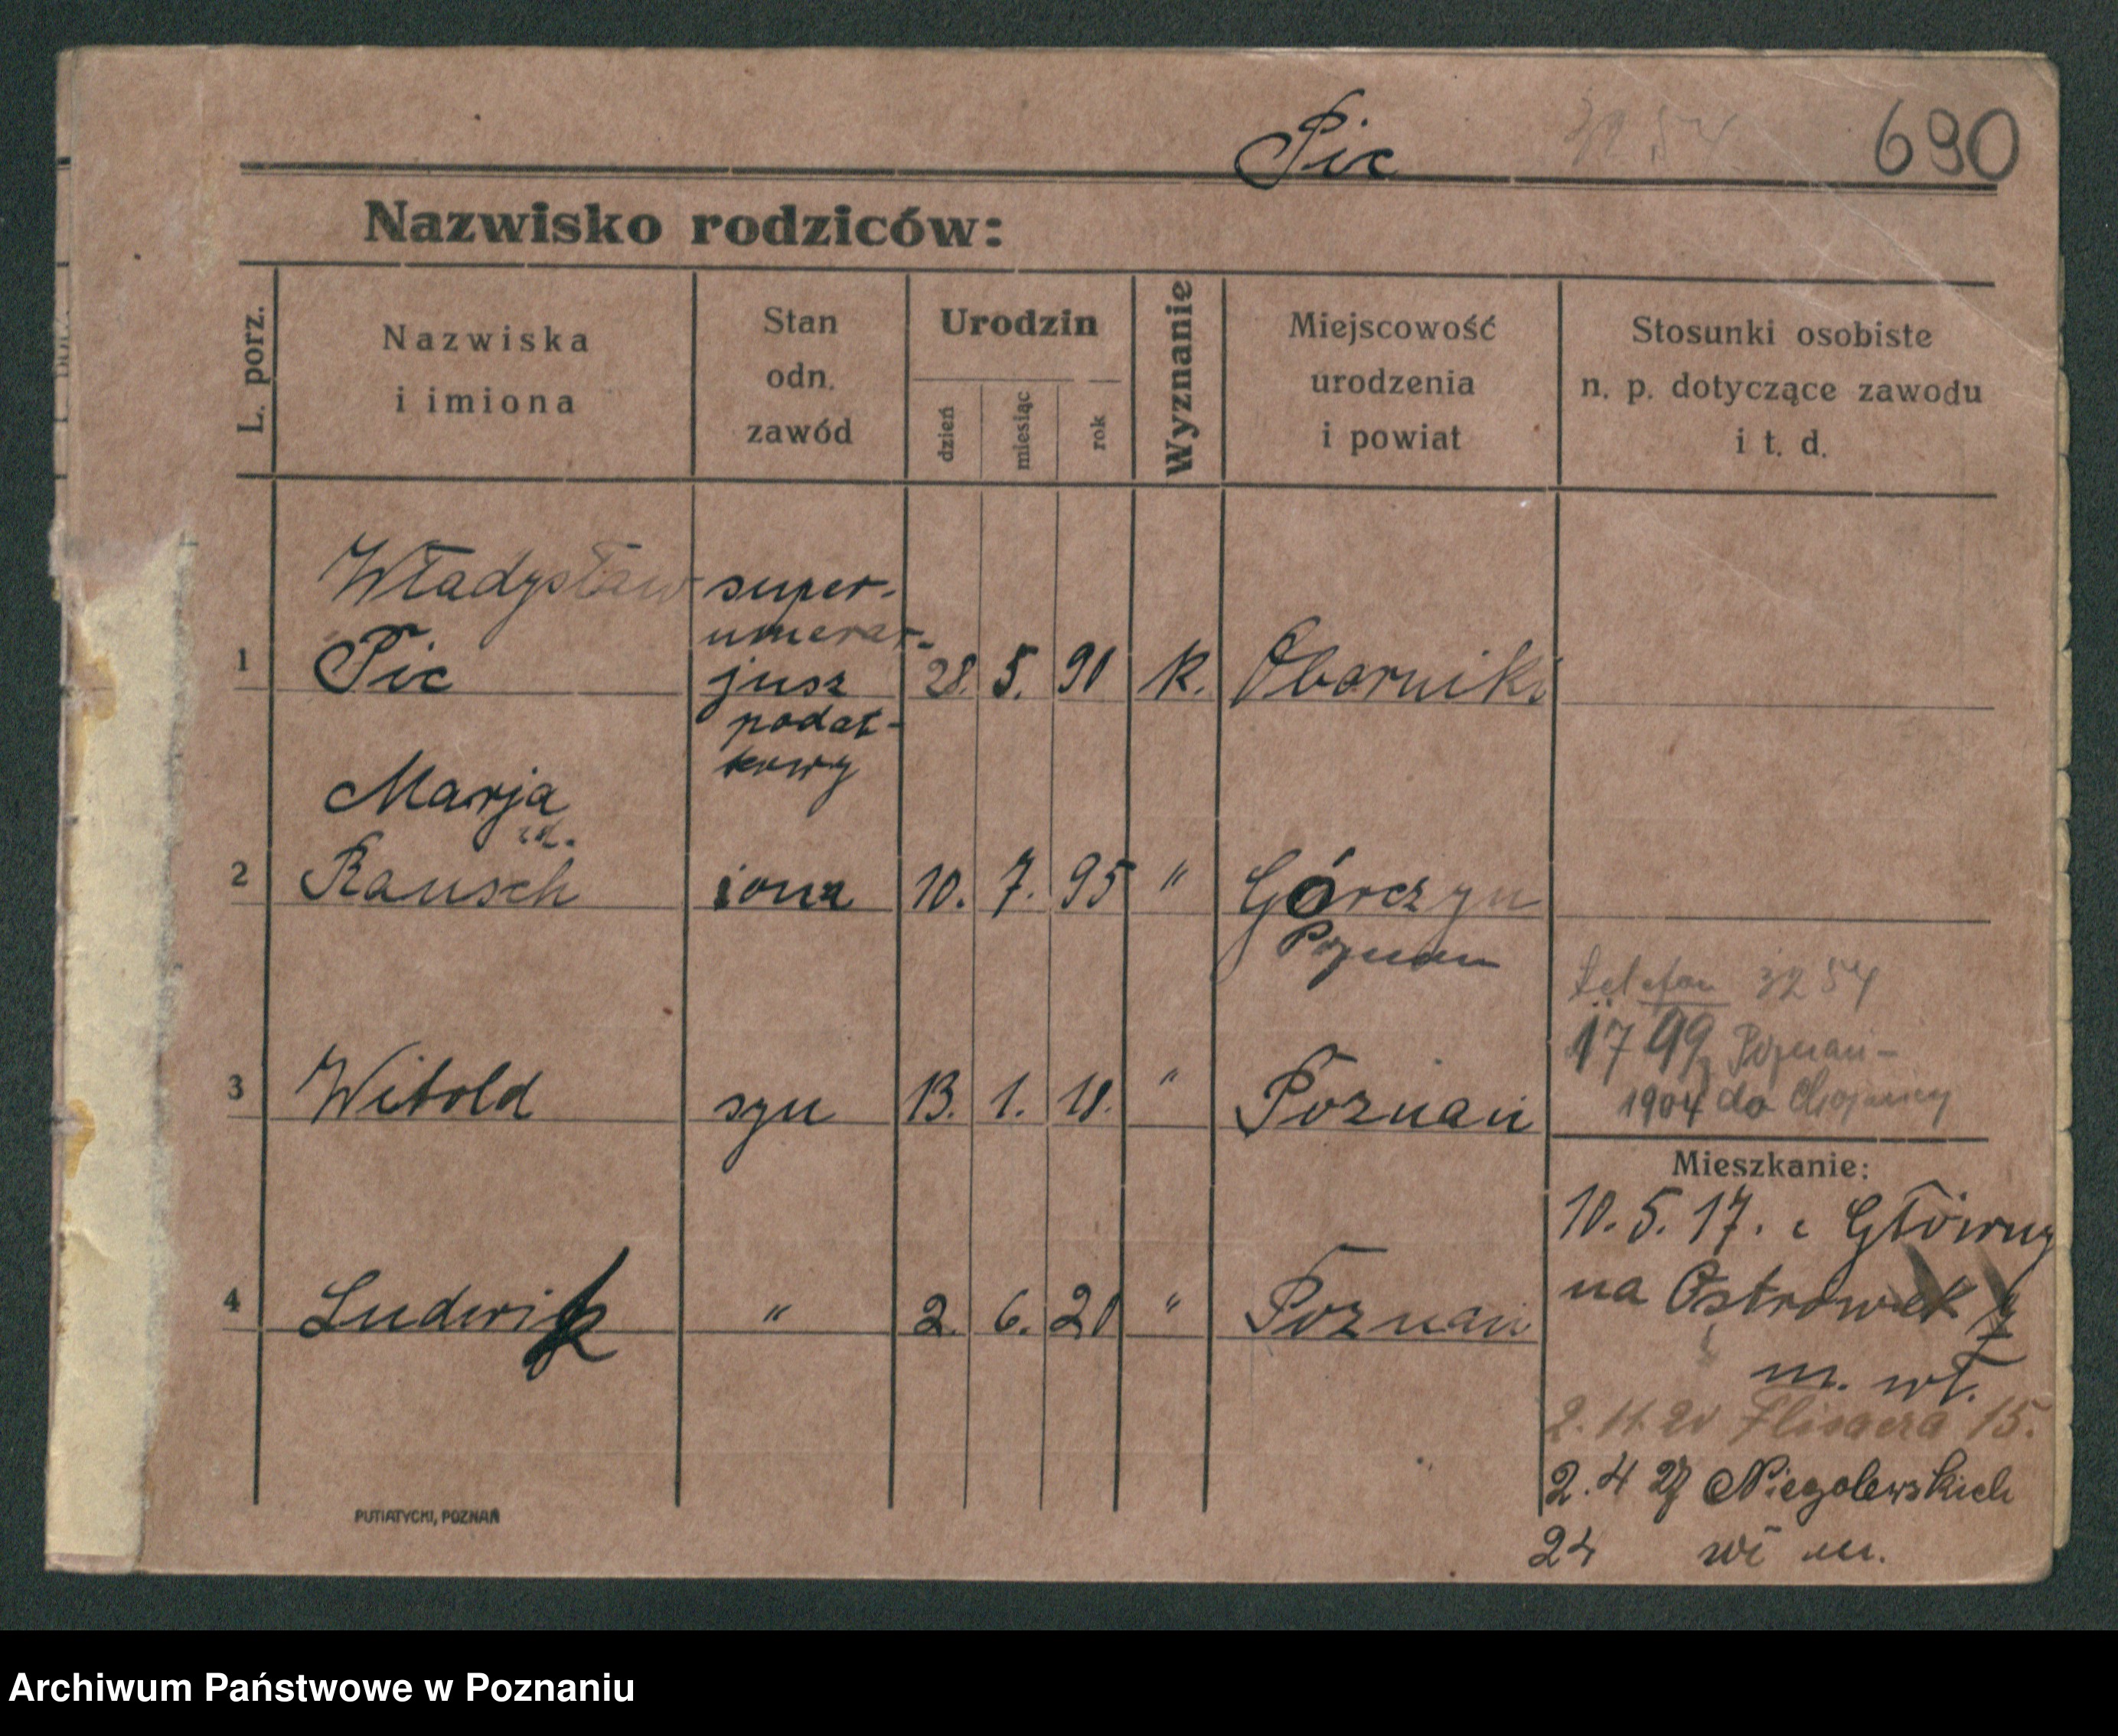 Pic 3254 690
Nazwisko rodziców:
L. porz.
Nazwiska
i imiona
Stan
odn.
zawód
Urodzin
dzień
miesiąc
rok
Wyznanie
Miejscowość
urodzenia
i powiat
Stosunki osobiste
n. p. dotyczące zawodu
i t. d.
Władysław super-
numerar-
1 Pic jusz 28. 5. 90 k. Oborniki
podat-
kowy
Marja
2 Rausch żona 10. 7. 95 " Górczyn
Poznań
telefon 3254
1799 Poznań-
3 Witold syn 13. 1. 18. " Poznań 1904 do Chojnicy
Mieszkanie:
10. 5. 17. z Główny
na Ostrówek
4 Ludwik " 2. 6. 20 " Poznań
m. wł.
2. 11. 20 Flisacza 15.
2. 4 27 Niegolewskich
24 wł m.
PUTIATYCKI, POZNAŃ
Archiwum Państwowe w Poznaniu